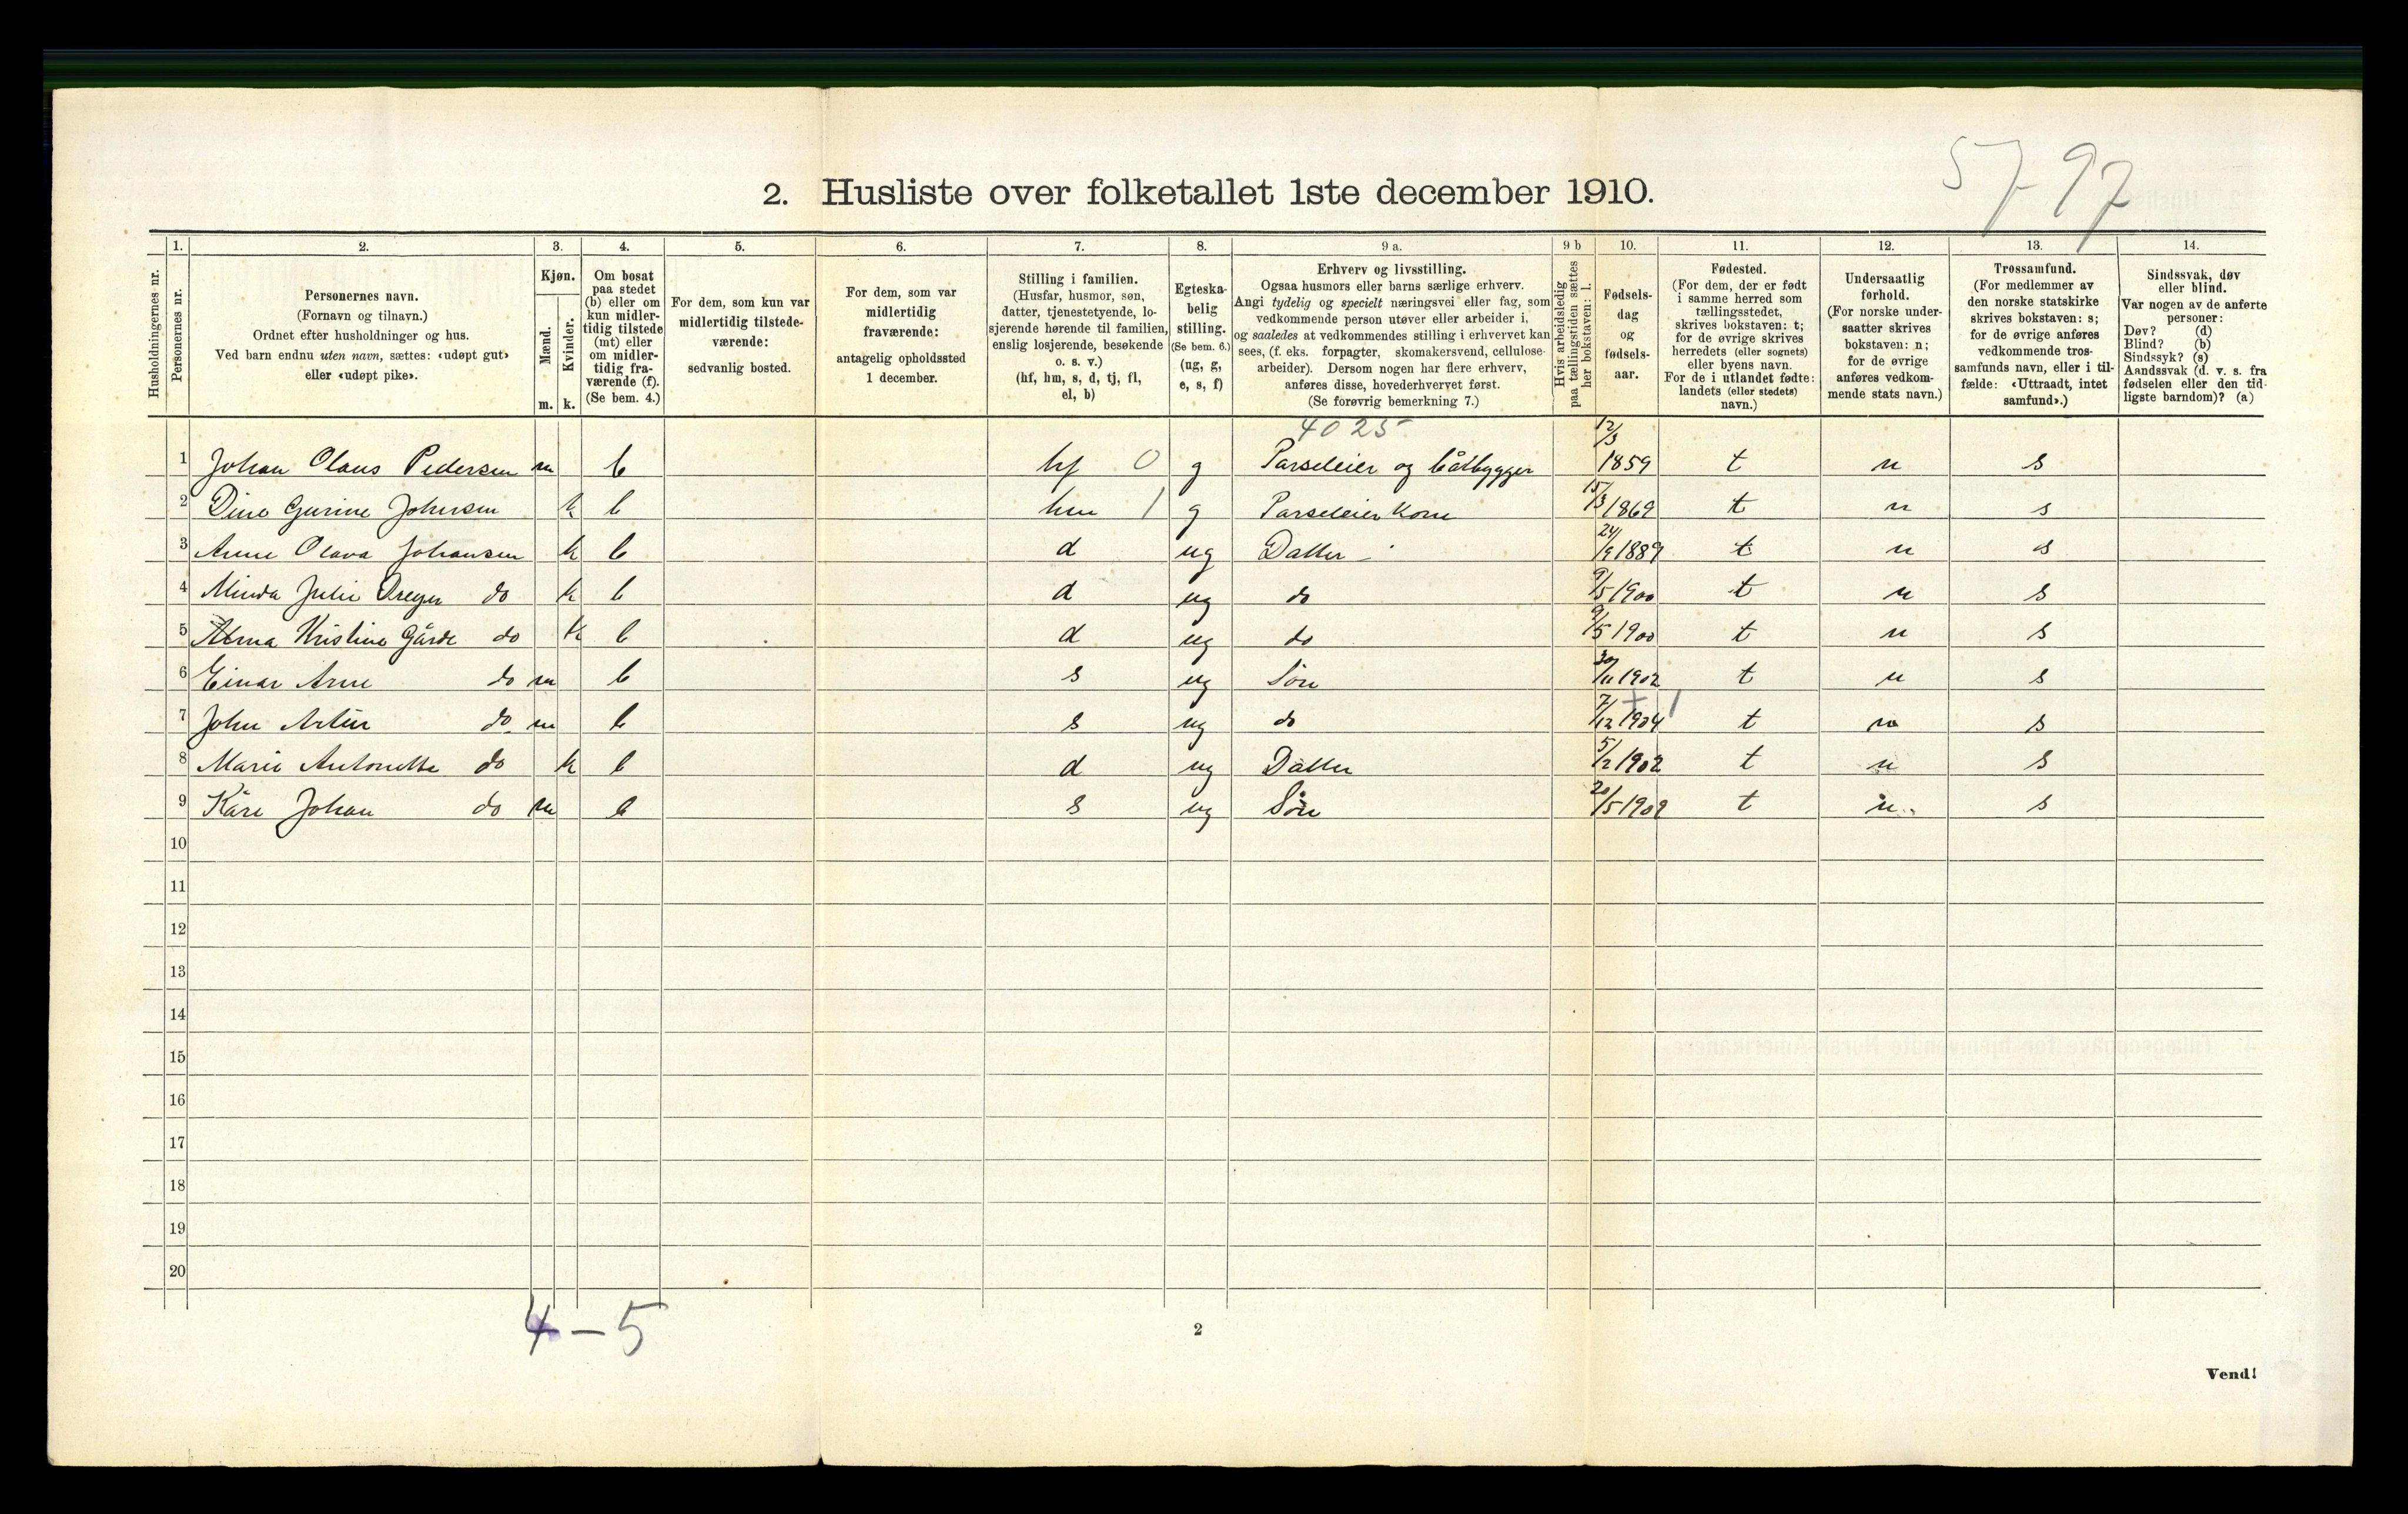 57-97
2. Husliste over folketallet 1ste december 1910.
Husholdningernes nr.
1. Personernes nr.
2. Personernes navn. (Fornavn og tilnavn.) Ordnet efter husholdninger og hus. Ved barn endnu uten navn, sættes: «udøpt gut» eller «udøpt pike».
3. Kjøn. Mænd. m. Kvinder. k.
4. Om bosat paa stedet (b) eller om kun midlertidig tilstede (mt) eller om midlertidig fraværende (f). (Se bem. 4.)
5. For dem, som kun var midlertidig tilstedeværende: sedvanlig bosted.
6. For dem, som var midlertidig fraværende: antagelig opholdssted 1 december.
7. Stilling i familien. (Husfar, husmor, søn, datter, tjenestetyende, losjerende hørende til familien, enslig losjerende, besøkende o. s. v.) (hf, hm, s, d, tj, fl, el, b)
8. Egteskabelig stilling. (Se bem. 6.) (ug, g, e, s, f)
9 a. Erhverv og livsstilling. Ogsaa husmors eller barns særlige erhverv. Angi tydelig og specielt næringsvei eller fag, som vedkommende person utøver eller arbeider i, og saaledes at vedkommendes stilling i erhvervet kan sees, (f. eks. forpagter, skomakersvend, cellulosearbeider). Dersom nogen har flere erhverv, anføres disse, hovederhvervet først. (Se forøvrig bemerkning 7.)
9 b Hvis arbeidsledig paa tællingstiden sættes her bokstaven: l.
10. Fødselsdag og fødselsaar.
11. Fødested. (For dem, der er født i samme herred som tællingsstedet, skrives bokstaven: t; for de øvrige skrives herredets (eller sognets) eller byens navn. For de i utlandet fødte: landets (eller stedets) navn.)
12. Undersaatlig forhold. (For norske undersaatter skrives bokstaven: n; for de øvrige anføres vedkommende stats navn.)
13. Trossamfund. (For medlemmer av den norske statskirke skrives bokstaven: s; for de øvrige anføres vedkommende trossamfunds navn, eller i tilfælde: «Uttraadt, intet samfund».)
14. Sindssvak, døv eller blind. Var nogen av de anførte personer: Døv? (d) Blind? (b) Sindssyk? (s) Aandssvak (d. v. s. fra fødselen eller den tidligste barndom)? (a)
4025
1 Johan Olaus Pedersen m b hf 0 g Parseleier og båtbygger 12/3 1859 t n s
2 Dine Gurine Johnsen k b hm 1 g Parseleier kone 15/3 1869 t n s
3 Anne Olava Johansen k b d ug Datter 24/9 1889 t n s
4 Minda Julie Dreyer do k b d ug do 9/5 1900 t n s
5 Alma Kristine Gårde do k b d ug do 9/5 1900 t n s
6 Einar Arne do m b s ug Søn 30/11 1902 t n s
7 John Artur do m b s ug do 7/12 1904 t n s
8 Marie Antonette do k b d ug Datter 5/2 1902 t n s
9 Kåre Johan do m b s ug Søn 20/5 1909 t n s
10
11
12
13
14
15
16
17
18
19
20
4-5
2
Vend!